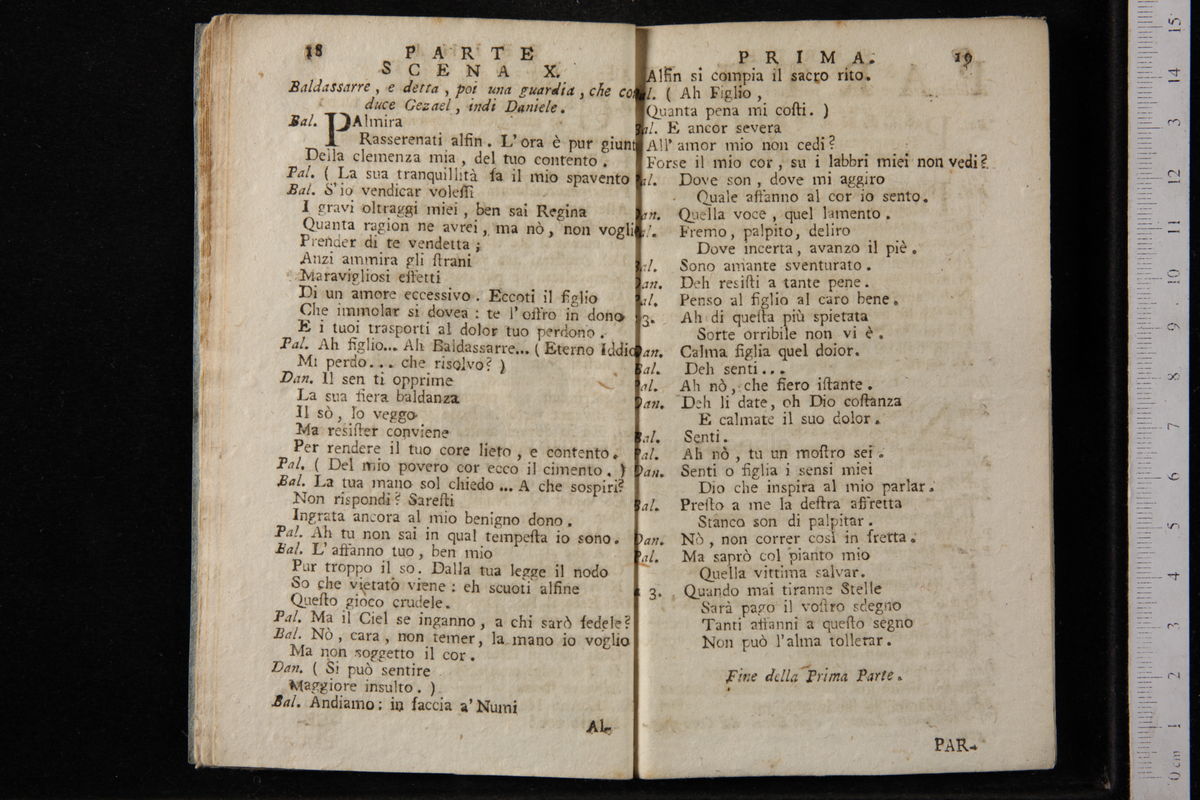 18 PARTE
SCENA X.
Baldassarre, e detta, poi una guardia, che con
duce Gezael, indi Daniele.
Bal. PAlmira
Rasserenati alfin. L'ora è pur giunt
Della clemenza mia, del tuo contento.
Pal. ( La sua tranquillità fa il mio spavento
Bal. S'io vendicar volessi
I gravi oltraggi miei, ben sai Regina
Quanta ragion ne avrei, ma nò, non voglio
Prender di te vendetta;
Anzi ammira gli strani
Maravigliosi effetti
Di un amore eccessivo. Eccoti il figlio
Che immolar si dovea: te l'offro in dono
E i tuoi trasporti al dolor tuo perdono.
Pal. Ah figlio... Ah Baldassarre... ( Eterno Iddio
Mi perdo... che risolvo? )
Dan. Il sen ti opprime
La sua fiera baldanza
Il sò, lo veggo
Ma resister conviene
Per rendere il tuo core lieto, e contento.
Pal. ( Del mio povero cor ecco il cimento. )
Bal. La tua mano sol chiedo ... A che sospiri?
Non rispondi? Saresti
Ingrata ancora al mio benigno dono.
Pal. Ah tu non sai in qual tempesta io sono.
Bal. L'affanno tuo, ben mio
Pur troppo il so. Dalla tua legge il nodo
So che vietato viene: eh scuoti alfine
Questo gioco crudele.
Pal. Ma il Ciel se inganno, a chi sarò fedele?
Bal. Nò, cara, non temer, la mano io voglio
Ma non soggetto il cor.
Dan. ( Si può sentire
Maggiore insulto. )
Bal. Andiamo: in faccia a' Numi
Al-
PRIMA. 19
Alfin si compia il sacro rito.
al. ( Ah Figlio,
Quanta pena mi costi. )
Bal. E ancor severa
All' amor mio non cedi?
Forse il mio cor, su i labbri miei non vedi?
Pal. Dove son, dove mi aggiro
Quale affanno al cor io sento.
Dan. Quella voce, quel lamento.
Pal. Fremo, palpito, deliro
Dove incerta, avanzo il piè.
Bal. Sono amante sventurato.
Dan. Deh resisti a tante pene.
Pal. Penso al figlio al caro bene.
3. Ah di questa più spietata
Sorte orribile non vi è.
Dan. Calma figlia quel dolor.
Bal. Deh senti...
Pal. Ah nò, che fiero istante.
Dan. Deh li date, oh Dio costanza
E calmate il suo dolor.
Bal. Senti.
Pal. Ah nò, tu un mostro sei.
Dan. Senti o figlia i sensi miei
Dio che inspira al mio parlar.
Bal. Presto a me la destra affretta
Stanco son di palpitar.
Dan. Nò, non correr così in fretta.
Pal. Ma saprò col pianto mio
Quella vittima salvar.
a 3. Quando mai tiranne Stelle
Sarà pago il vostro sdegno
Tanti affanni a questo segno
Non può l'alma tollerar.
Fine della Prima Parte.
PAR-
0 cm 1 2 3 4 5 6 7 8 9 10 11 12 3 14 15